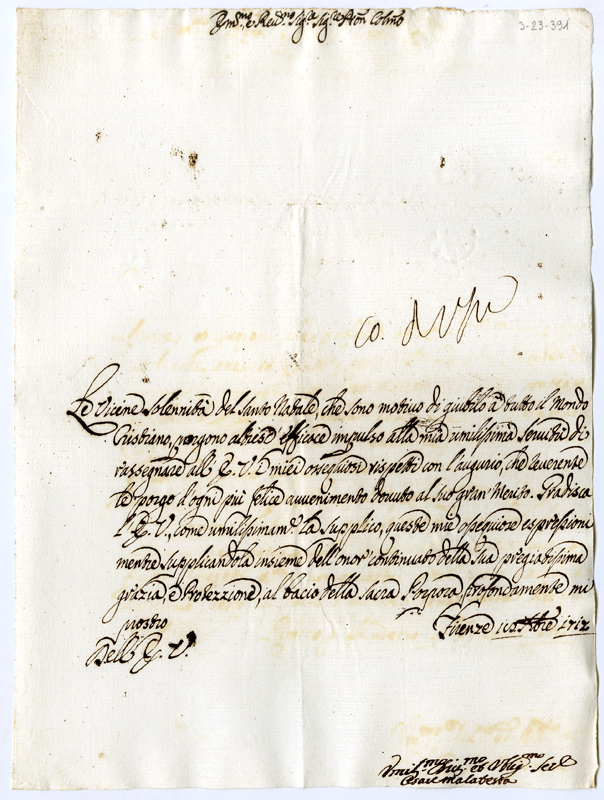 Em.mo e Rev.mo Sig.re Sig.re P.ron Col.mo
3-23-391
Co.
Le Vicine solennità del Santo Natale, che sono motivo di giubilo à tutto il Mondo
Cristiano, porgono altresì efficace impulso alla mia umilissima servitù di
rassegnare all' E. V. i miei ossequiosi rispetti con l'augurio, che reverente
le porgo d'ogni più felice avvenimento dovuto al suo gran Merito. Gradisca
l'E. V., come umilissimam.e la supplico, queste mie ossequiose espressioni
mentre supplicandola insieme dell'onor continuato della sua pregiatissima
grazia, e Protezzione, al bacio della Sacra Porpora profondamente mi
prostro
Firenze 10 Xbre 1712
Dell' E. V.
Umil.mo Div.mo et Oblig.mo Ser.e
Cesare Malatesta